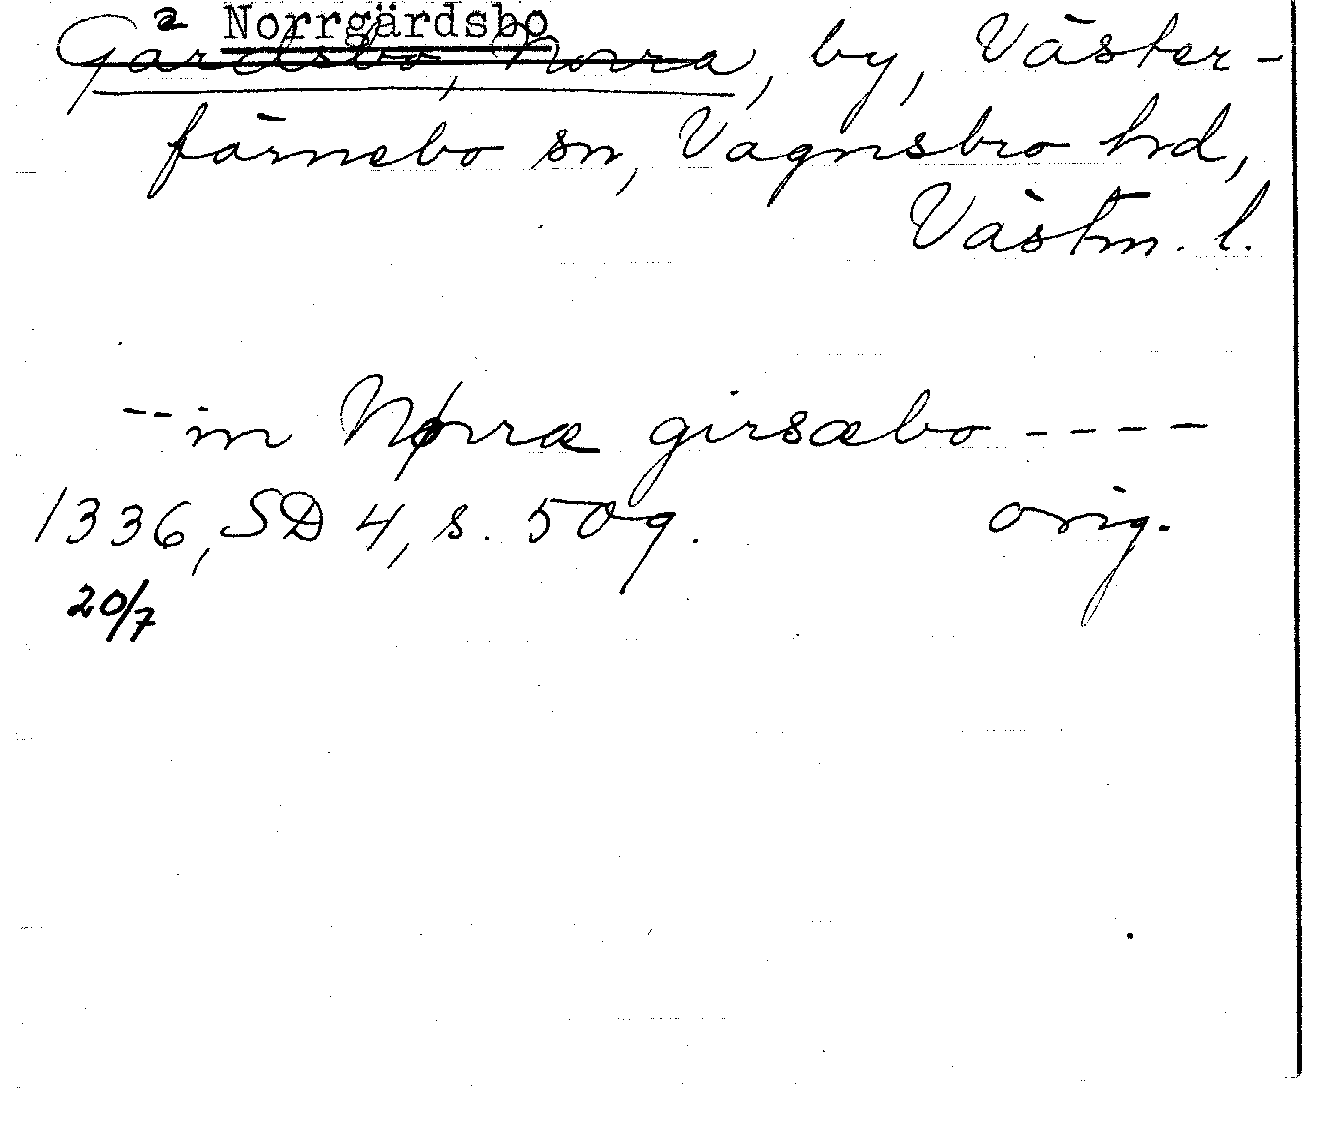 a Norrgärdsbo
Gärdsbo, Norra, by, Väster-
färnebo sn, Vagnsbro hd,
Västm. l.
-- in Nørræ girsæbo ----
1336, SD 4, s. 509. orig.
20/7